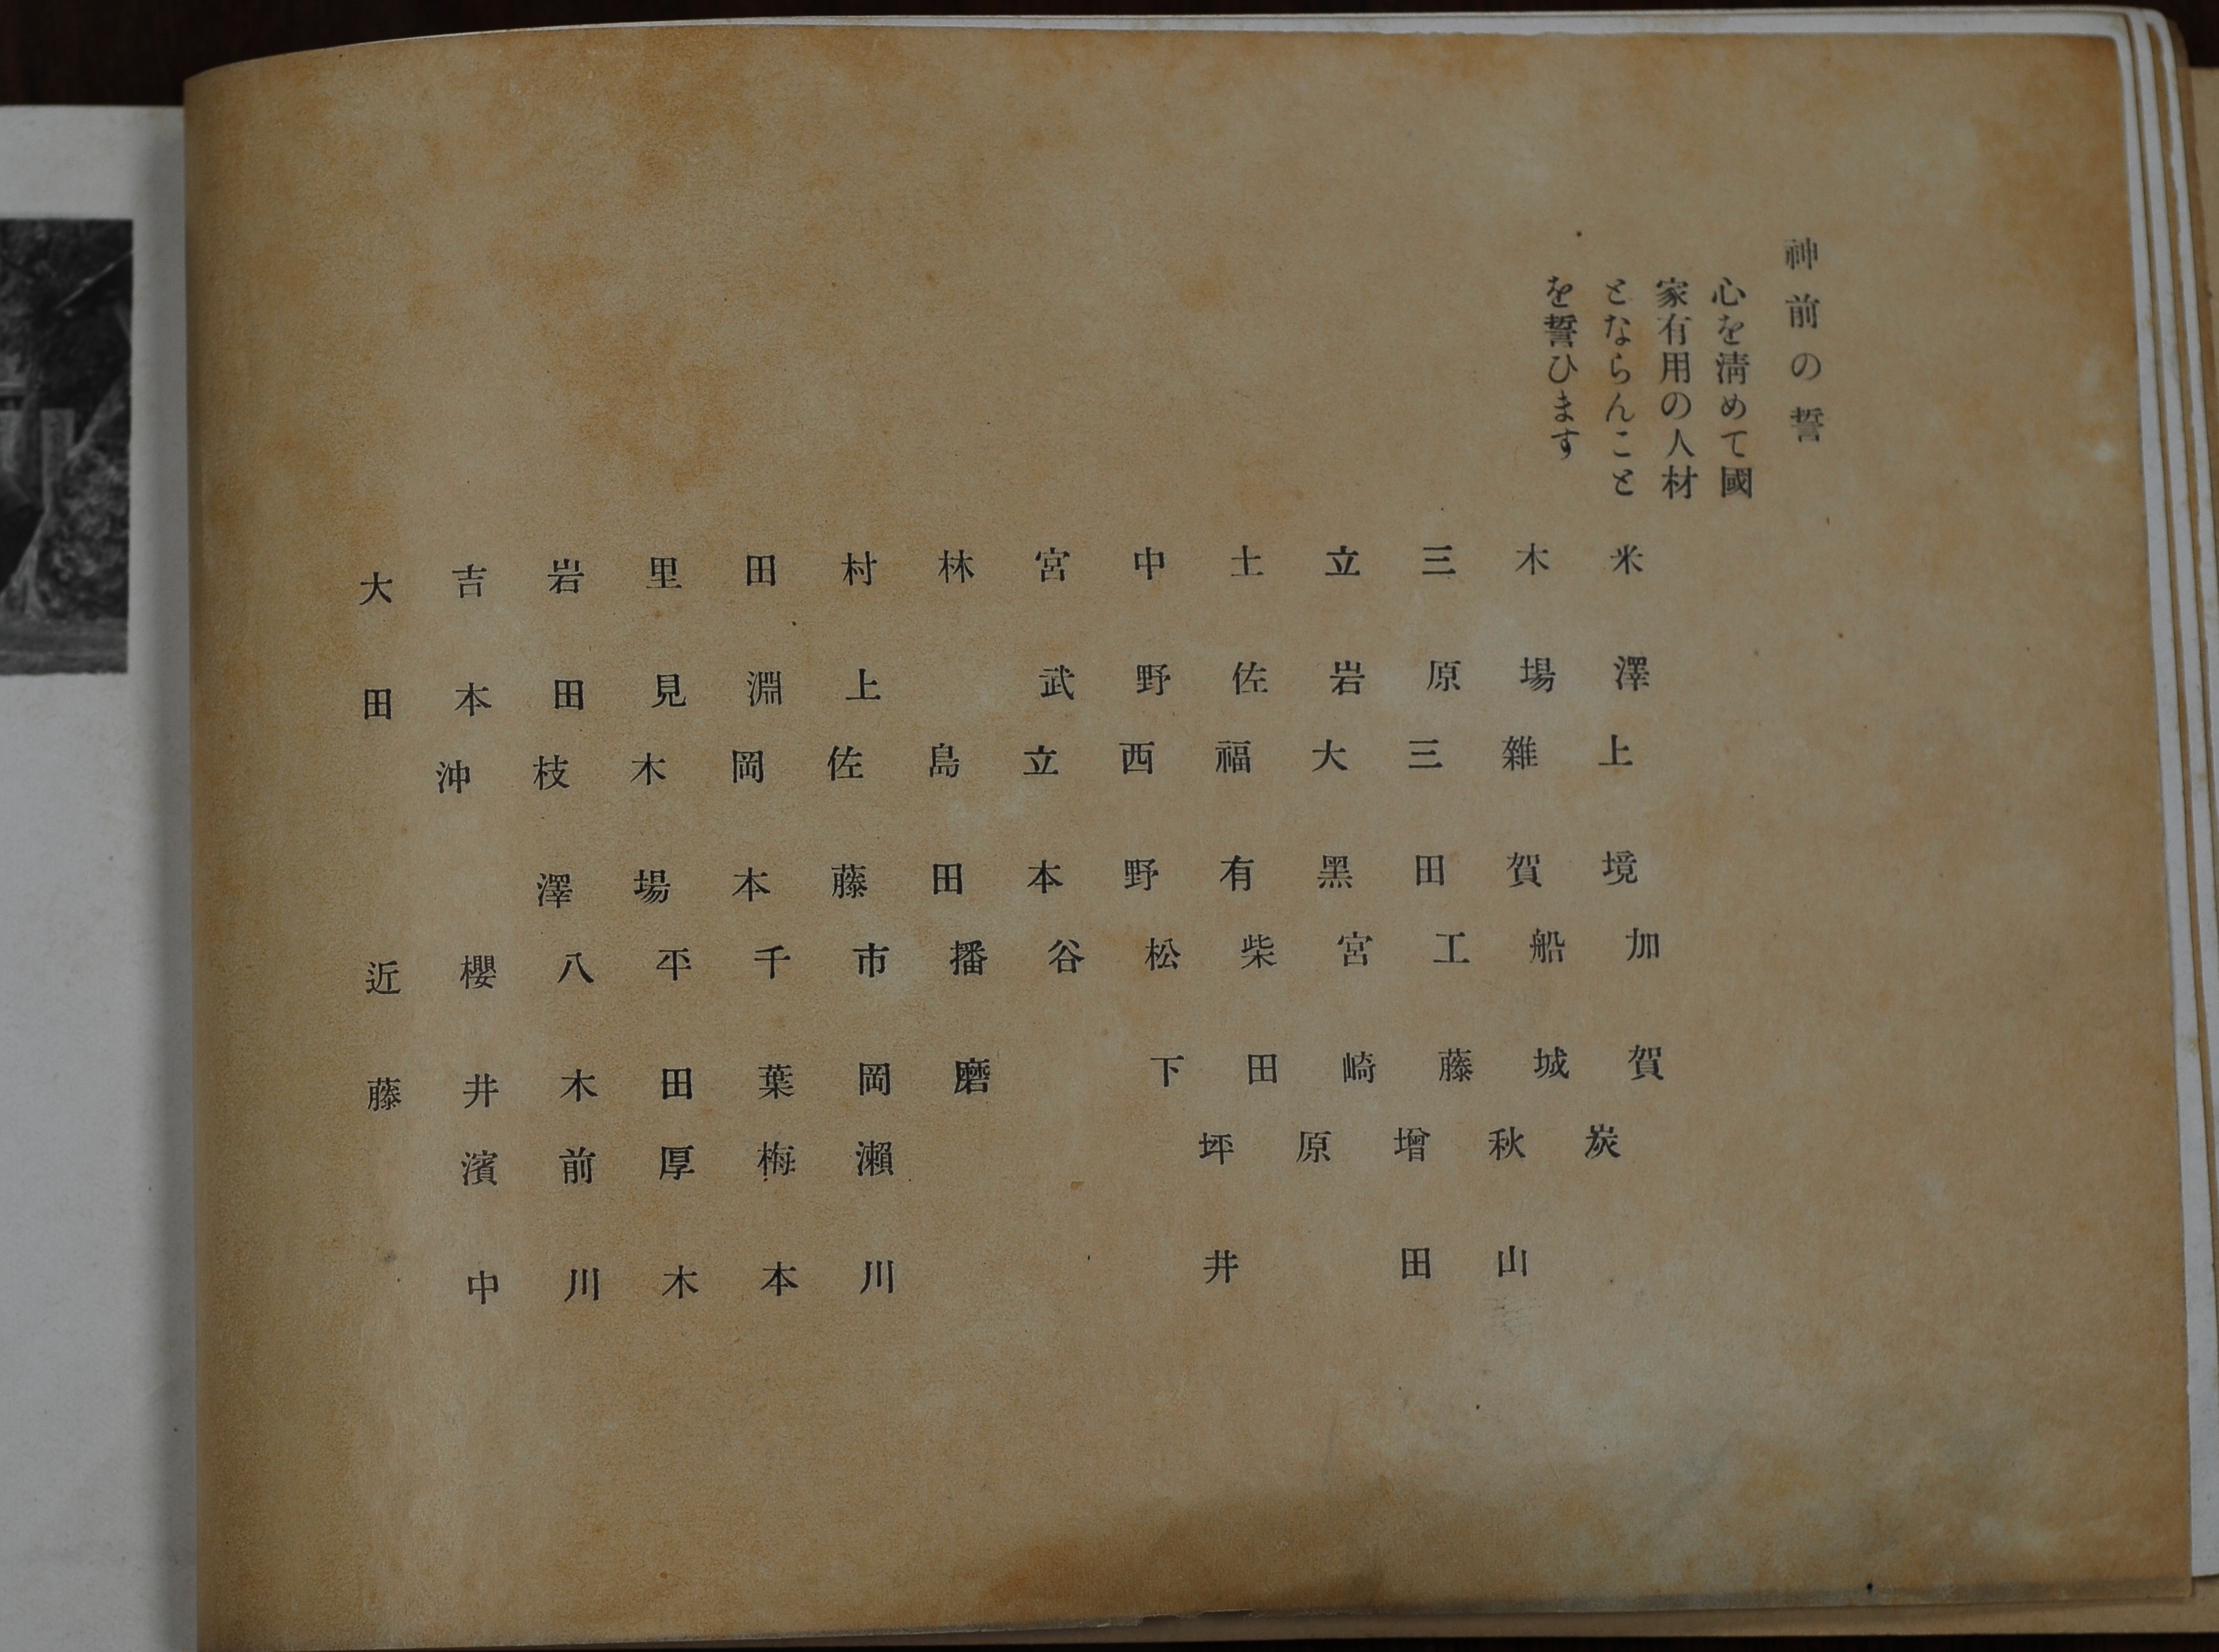 神前の誓
心を淸めて國
家有用の人材
とならんこと
を誓ひます
米澤
木場
三原
立岩
土佐
中野
宮武
林
村上
田淵
里見
岩田
吉本
大田
上境
雜賀
三田
大黑
福有
西野
立本
島田
佐藤
岡本
木場
枝澤
沖
加賀
船城
工藤
宮崎
柴田
松下
谷
播磨
市岡
千葉
平田
八木
櫻井
近藤
炭
秋山
增田
原
坪井
瀨川
梅本
厚木
前川
濱中